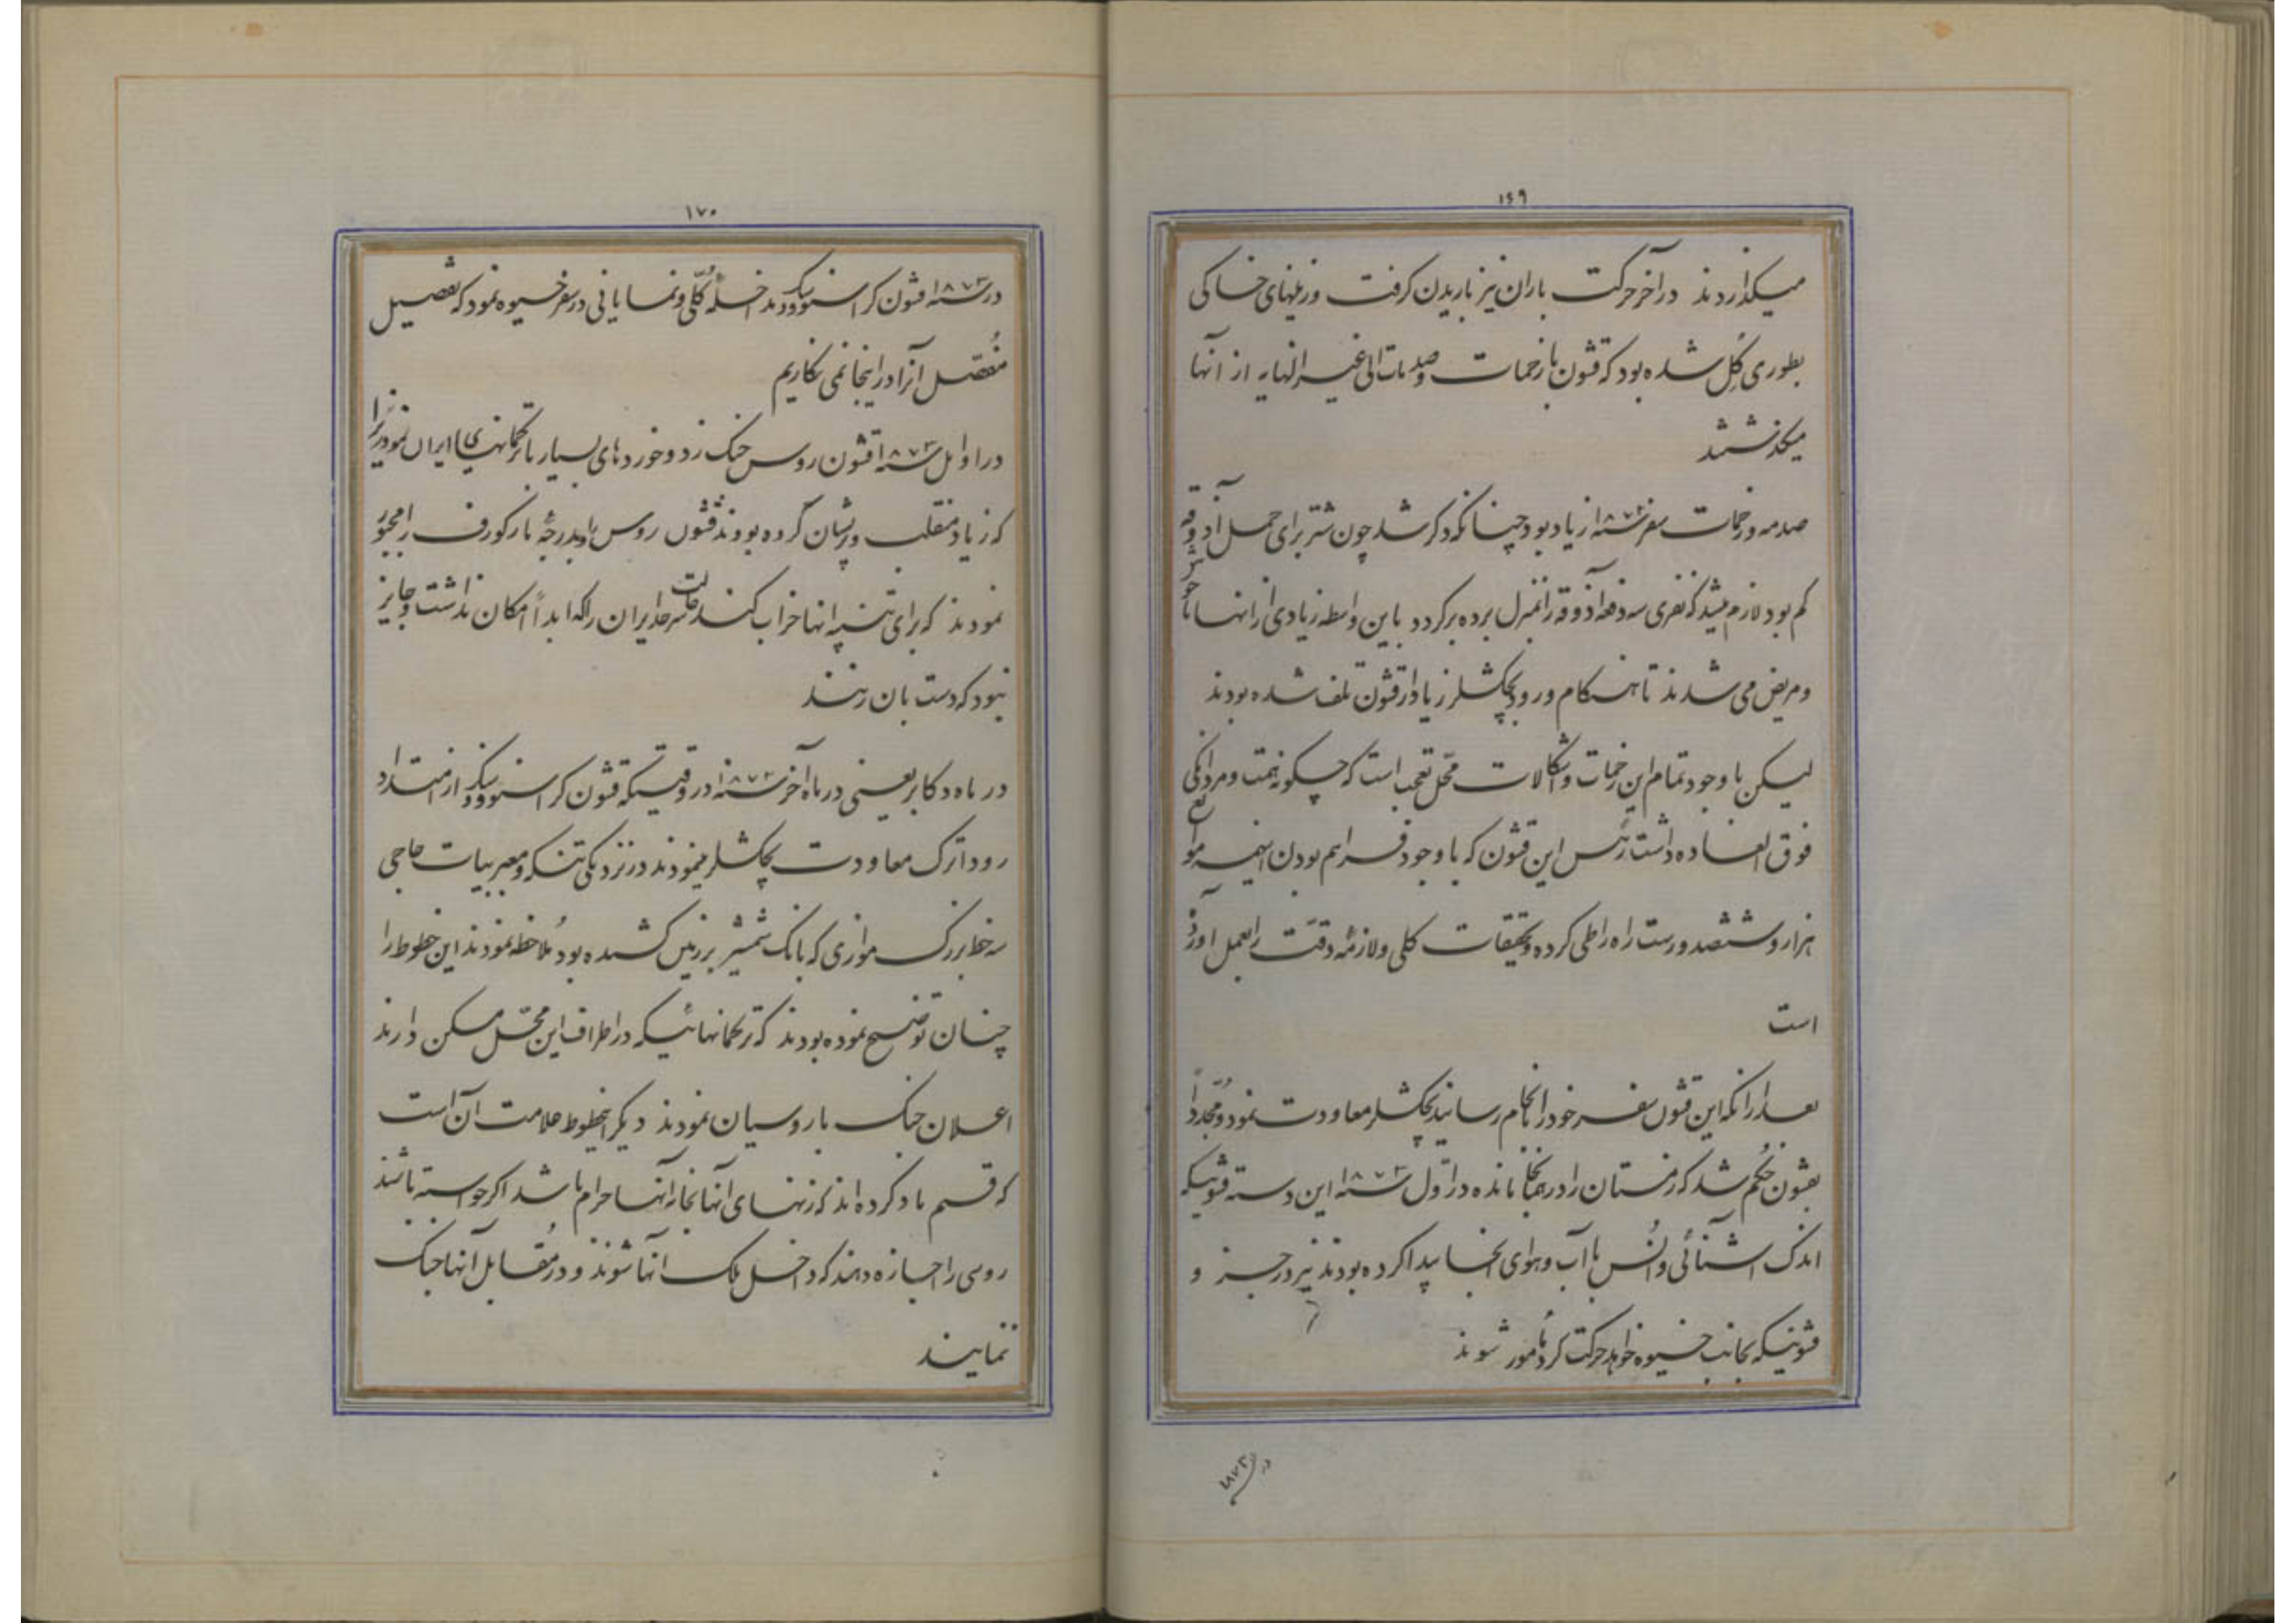 ۱۶۹
میکذاردند در آخر حرکت باران نیز باریدن کرفت و زمینهای خاکی
بطوری کِل شده بود که قشون با زحمات و صدمات الی غیر النهایه از آنها
میکذشتند
صدمه و زحمات سفر سنه ۱۸۷۲ زیاد بود چنانکه ذکر شد چون شتر برای حمل آذوقه
کم بود لازم میشد که نفری سه دفعه آذوقه را بمنزل برده برکردد باین واسطه زیادی از انها ناخوش
و مریض می شدند تا هنکام ورود بچکشلر زیاد از قشون تلف شده بودند
لیکن با وجود تمام این زحمات و اشکالات محل تعجب است که چکونه همت و مردانکی
فوق العاده داشت رئیس این قشون که با وجود فراهم بودن اینهمه موانع
هزار و ششصد ورست راه را طی کرده و تحقیقات کلی و لازمهٔ دقت را بعمل آورده
است
بعد از انکه این قشون سفر خود را بانجام رسانید بچکشلر معاودت نمود و مُجدداً
بقشون حُکم شد که زمستان را در همانجا مانده در اوّل سنه ۱۸۷۳ این دسته قشونیکه
اندک آشنائی و اُنس با آب و هوای انجا پیدا کرده بودند نیز در جزو
قشونیکه بجانب خیوه خواهد حرکت کرد مأمور شوند
در سنه ۱۸۷۳
۱۷۰
در سنه ۱۸۷۳ قشون کراسنوودسک مداخلهٔ کُلّی و نمایانی در سفر خیوه نمود که تفصیل
مُفصل آنرا در اینجا نمی نکاریم
در اوایل سنه ۱۸۷۳ قشون روس جنک زد و خوردهای بسیار با ترکمانهای ایران نمود زیرا
که زیاد منقلب و پریشان کرده بودند قشون روس را و بدرجهٔ مارکورف را مجبور
نمودند که برای تنبیه انها خراب کند حالت سرحد ایران را که ابداً امکان نداشت و جایز
نبود که دست بان زنند
در ماه دکابر یعنی در ماه آخر سنه ۱۸۷۲ در وقتیکه قشون کراسنوودسک از امتداد
رود اترک معاودت بچکشلر مینمودند در نزدیکی تنکه و معبر بیات حاجی
سه خط بزرک موازی که با نک شمشیر بر زمین کشیده بود مُلاحظه نمودند این خطوط را
چنان توضیح نموده بودند که ترکمانهائیکه در اطراف این محّل مسکن دارند
اعلان جنک با روسیان نمودند دیکر اینخطوط علامت آن است
که قسم یاد کرده اند که زنهای انها بخانه آنها حرام باشد اکر خواسته باشند
روسی را اجازه دهند که داخل ملک انها شوند و در مُقابل آنها جنک
ننمایند